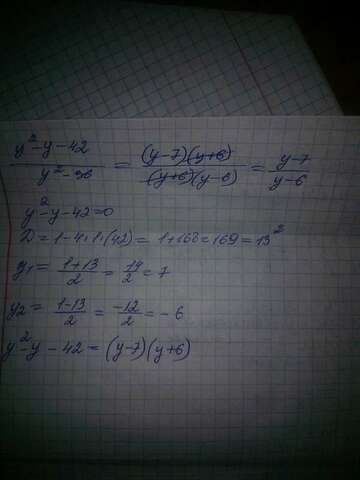 (y²-y-42)/(y²-36) = ((y-7)(y+6))/((y+6)(y-6)) = (y-7)/(y-6)
y²-y-42=0
D=1-4·1·(42)= 1+168=169=13²
y₁= (1+13)/2 = 14/2 = 7
y₂ = (1-13)/2 = -12/2 = -6
y²-y-42=(y-7)(y+6)